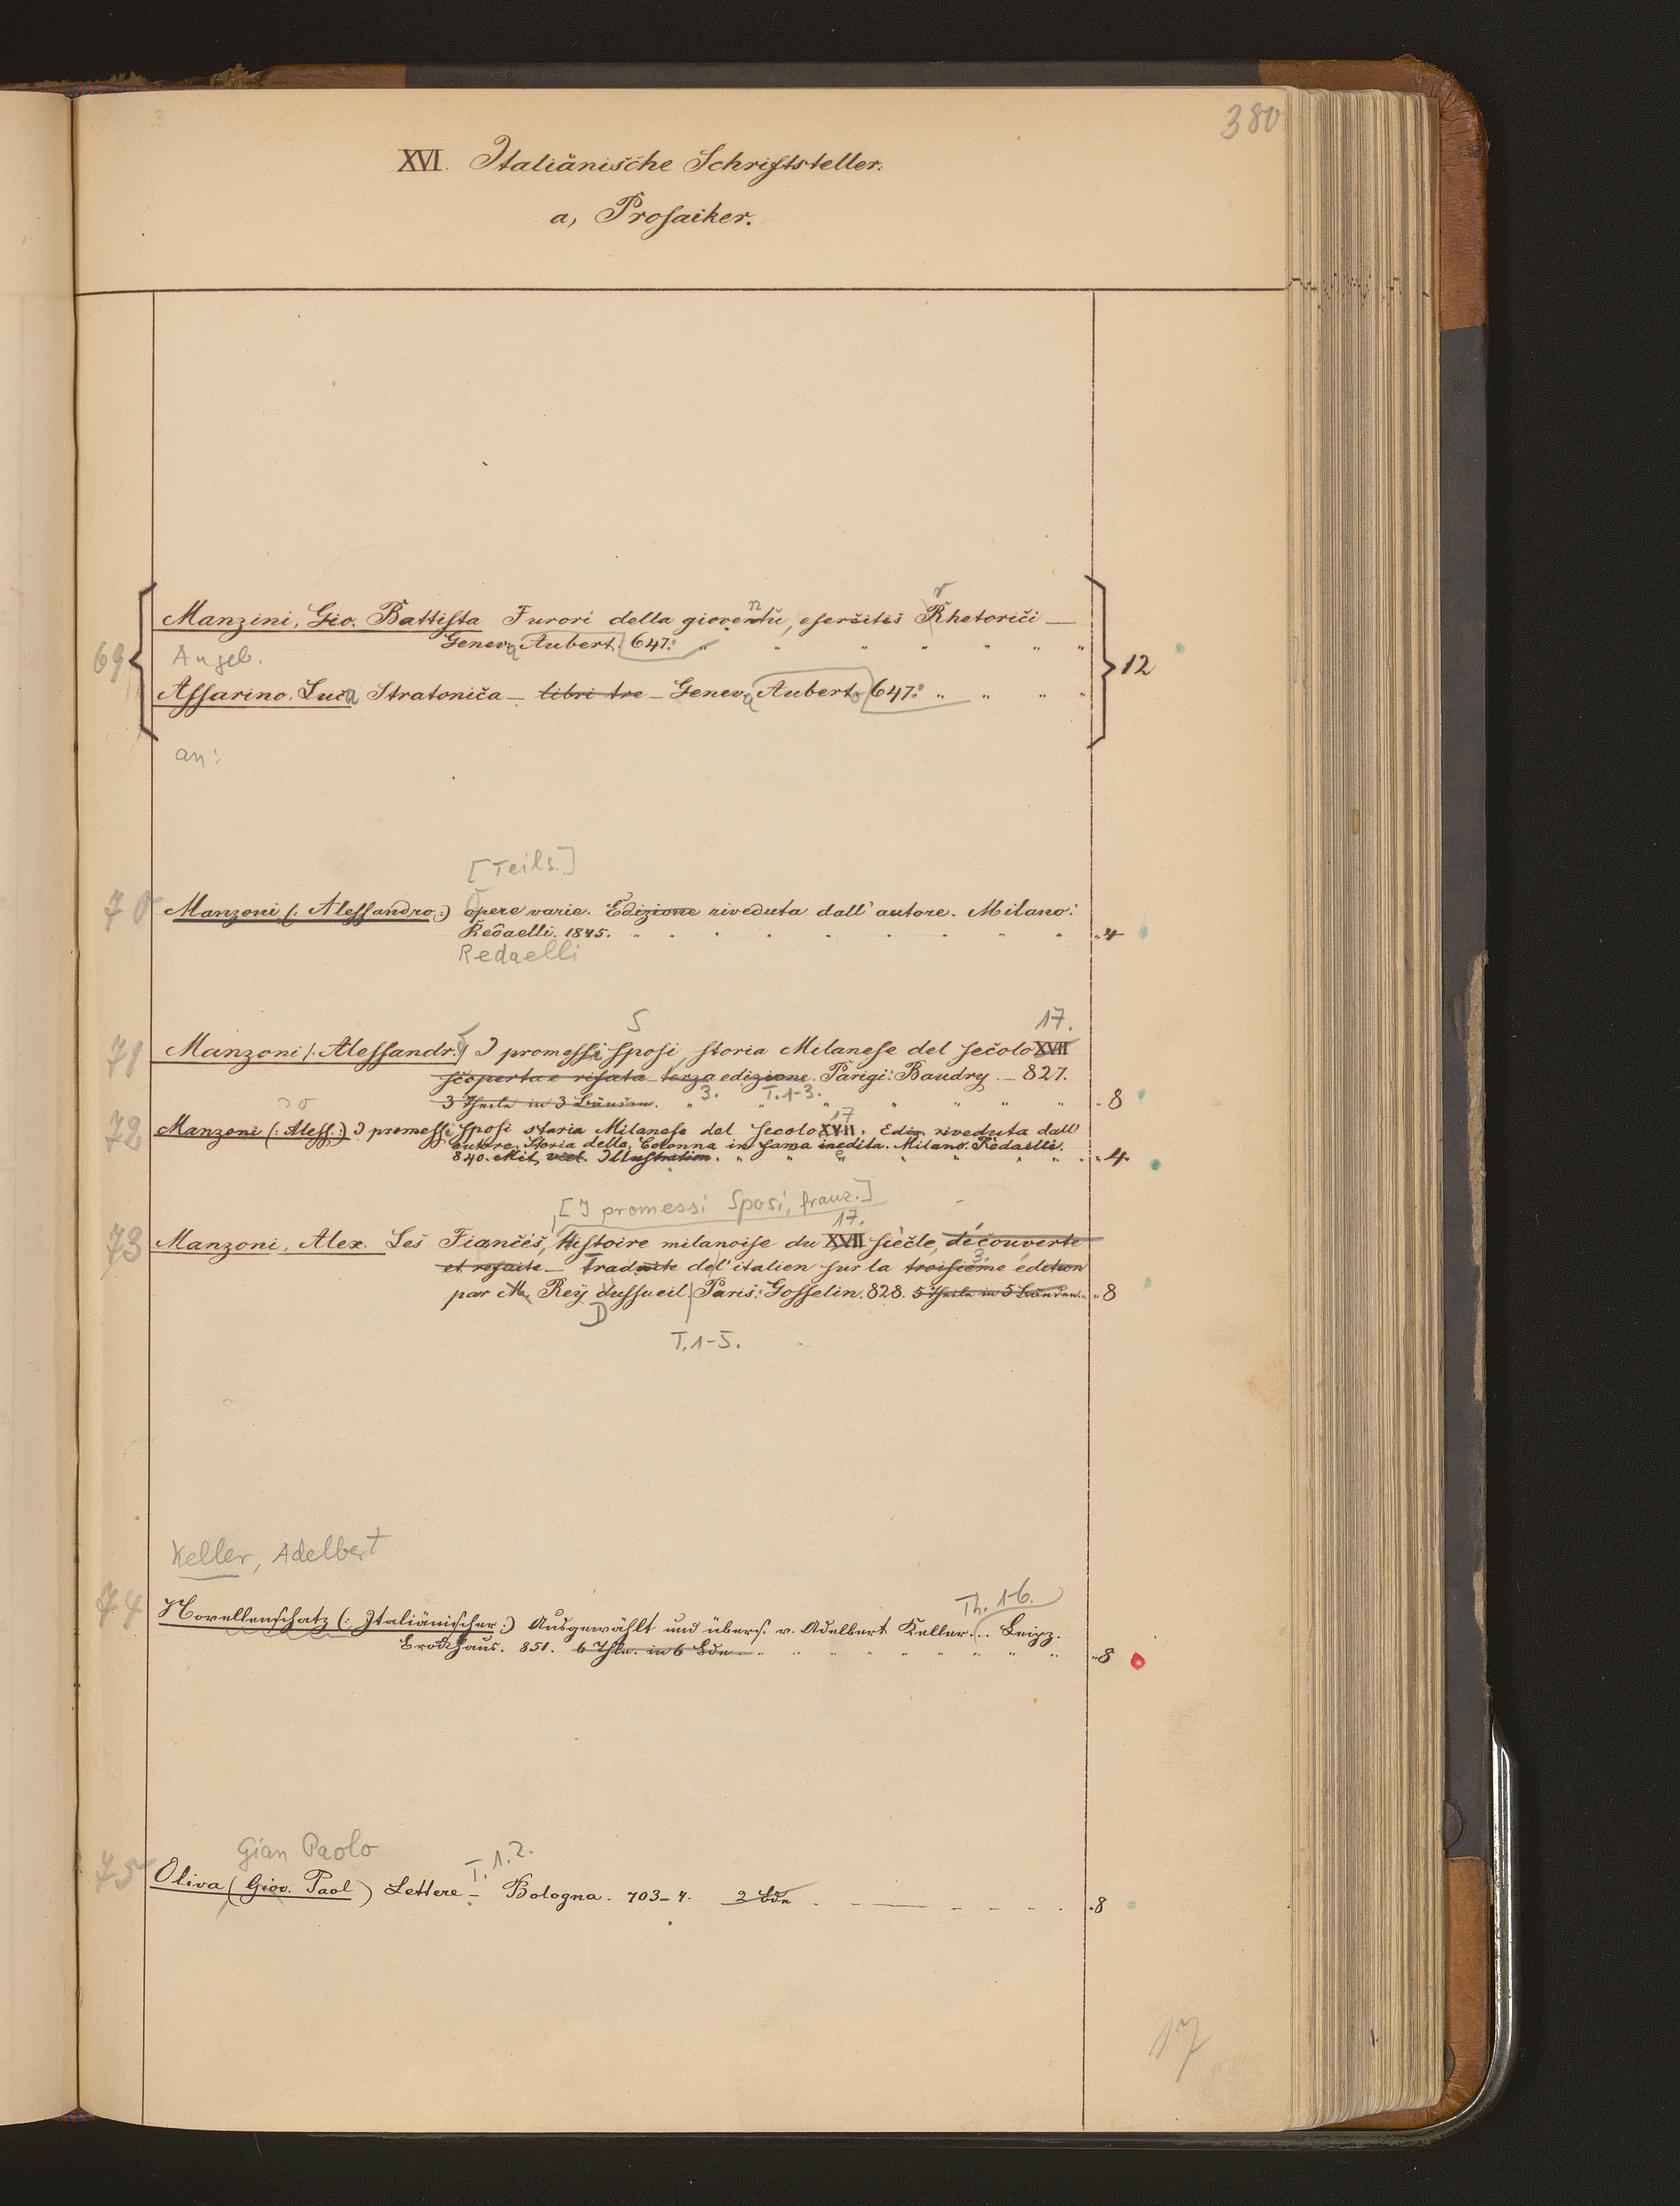 380
XVI. Italiänische Schriftsteller.
a, Prosaiker.
69
Manzini, Gio. Battista Furori della gioventù, esercitis Rhetorici —
n r
Geneva Aubert. 647. " " " " " " "
12
Angeb.
Assarino. Luca Stratonica — libri tre — Geneva Aubert. 647. " " " "
an:
[Teils.]
70 Manzoni (: Alessandro:) opere varie. Edizione riveduta dall' autore. Milano:
Redaelli. 1845. " " " " " " " " " " 4
Redaelli
S 17.
71 Manzoni (: Alessandr. I promessi sposi, storia Milanese del secolo XVII
scoperta e rifata terza edizione. Parigi: Baudry. — 827.
3 Theile in 3 Bänden. " 3. T. 1-3. " " " " " " 8
17
72 Manzoni (: Aless:) I promessi sposi storia Milanese del secolo XVII. Ediz. riveduta dall'
autore. Storia della Colonna infama inedita. Milano. Redaelli.
840. Mit viel. Illustration. " " " " " " " " 4.
[I promessi Sposi, franz.]
17.
73 Manzoni, Alex. Les Fiancés, Histoire milanoise du XVII siècle, découverte
3.
et refaite — Traduite de l'italien sur la troisième édition
par M. Rey dussueil. Paris: Gosselin. 828. 5 Theile in 5 Bänden. " 8
D
T. 1-5.
Keller, Adelbert
Th. 1-6.
74 Novellenschatz (: Italiänischer:) Ausgewählt und übers. v. Adelbert Keller... Leipz.
Brockhaus. 851. 6 Thle. in 6 Bdn — " " " " " " " " " 8
Gian Paolo
T. 1. 2.
75 Oliva (Giov. Paol) Lettere — Bologna. 703–4. 2 Bdn . — — — — . 8
17